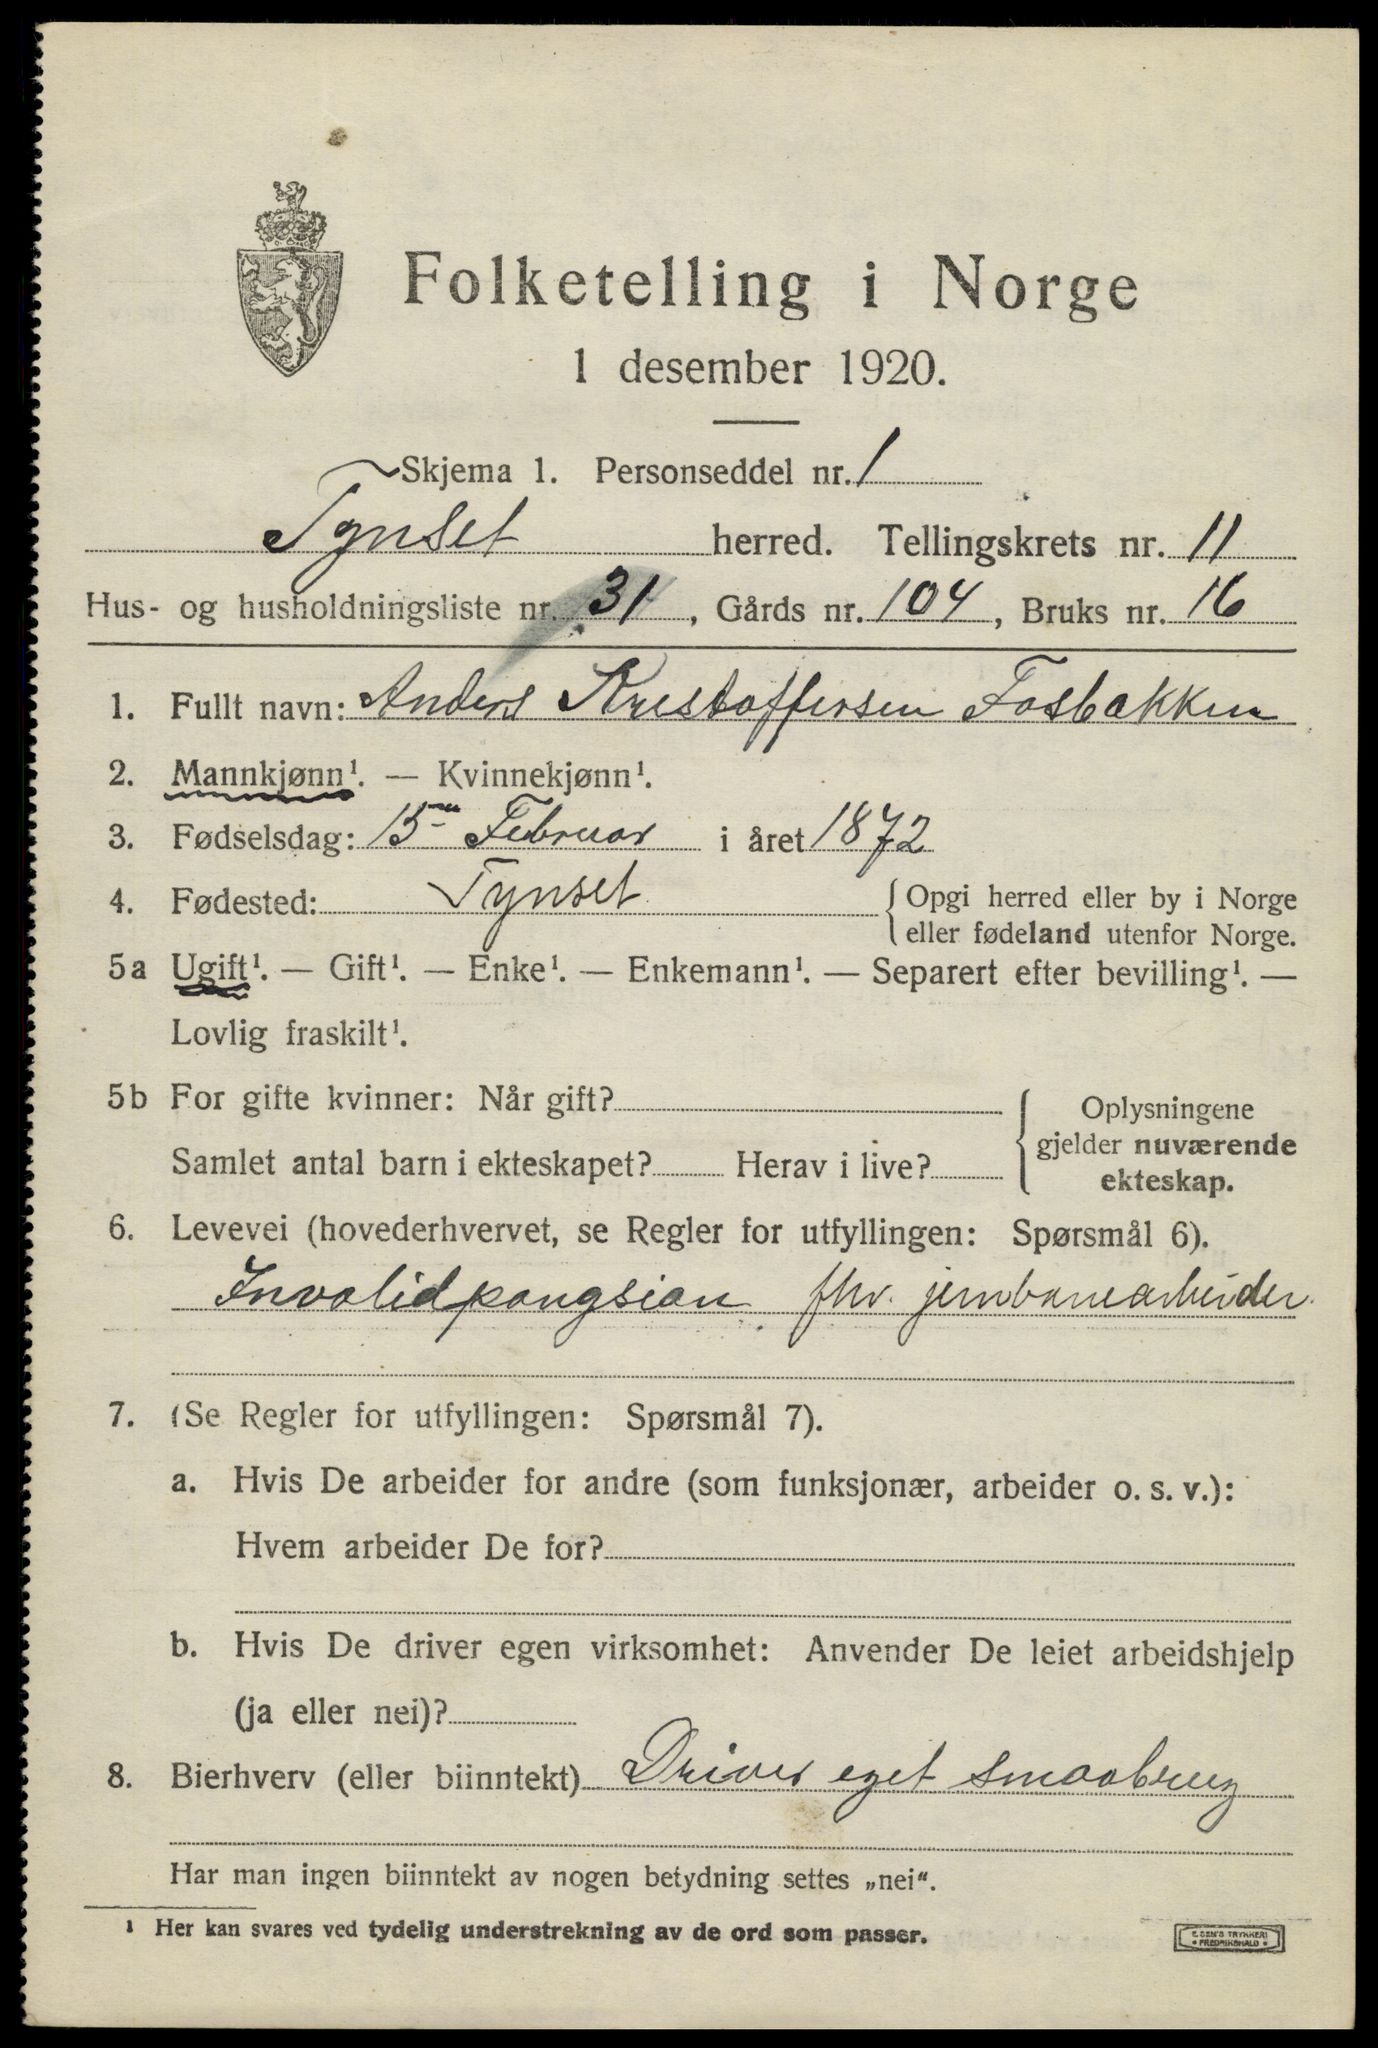 Folketelling i Norge
1 desember 1920.
Skjema 1. Personseddel nr. 1
Tynset herred. Tellingskrets nr. 11
Hus- og husholdningsliste nr. 31, Gårds nr. 104, Bruks nr. 16
1. Fullt navn: Anders Kristoffersen Fosbakken
2. Mannkjønn¹. — Kvinnekjønn¹.
3. Fødselsdag: 15de Februar i året 1872
4. Fødested: Tynset {Opgi herred eller by i Norge
eller fødeland utenfor Norge.
5a Ugift¹. — Gift¹. — Enke¹. — Enkemann¹. — Separert efter bevilling¹. —
Lovlig fraskilt¹.
5b For gifte kvinner: Når gift?
Samlet antal barn i ekteskapet? Herav i live?
Oplysningene
gjelder nuværende
ekteskap.
6. Levevei (hovederhvervet, se Regler for utfyllingen: Spørsmål 6).
Invalidpangsion fhv. jernbanearbeider
7. (Se Regler for utfyllingen: Spørsmål 7).
a. Hvis De arbeider for andre (som funksjonær, arbeider o. s. v.):
Hvem arbeider De for?
b. Hvis De driver egen virksomhet: Anvender De leiet arbeidshjelp
(ja eller nei)?
8. Bierhverv (eller biinntekt) Driver eget smaabrug
Har man ingen biinntekt av nogen betydning settes „nei".
¹ Her kan svares ved tydelig understrekning av de ord som passer.
E. SEM'S TRYKKERI
• FREDRIKSHALD •